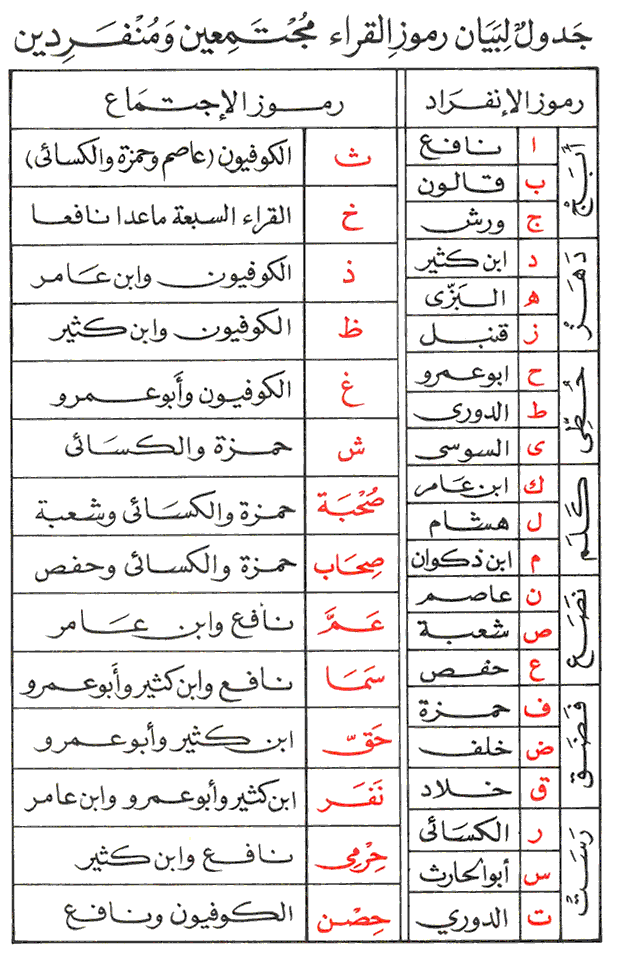 جَدولٌ لِبَيَان رموزِ القراء مُجْتَمِعين وَمُنْفَرِدين
رموز الإنفرَاد
أبَجْ
ا نافع
ب قالون
ج ورش
دَهَزْ
د ابن كثير
ه البَزّى
ز قنبل
حُطِّى
ح ابوعمرو
ط الدورى
ى السوسى
كَلَم
ك ابن عامر
ل هشام
م ابن ذكوان
نَصَعْ
ن عاصم
ص شعبة
ع حفص
فَضَقْ
ف حمزة
ض خلف
ق خلاد
رَسَتْ
ر الكسائى
س أبوالحارث
ت الدوري
رموز الإجتمَاع
ث الكوفيون (عاصم وحمزة والكسائى)
خ القراء السبعة ماعدا نافعا
ذ الكوفيون وابن عامر
ظ الكوفيون وابن كثير
غ الكوفيون وأبوعمرو
ش حمزة والكسَائى
صُحْبَة حمزة والكسائى وشعبة
صِحَاب حمزة والكسائى وحفص
عَمَّ نافع وابن عامر
سَمَا نافع وابن كثير وأبوعمرو
حَقّ ابن كثير وأبوعمرو
نَفَر ابن كثير وأبوعمرو وابن عامر
حِرْمِى نافع وابن كثير
حِصْن الكوفيون ونافع